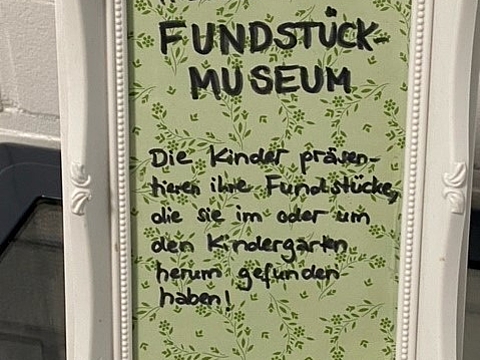 FUNDSTÜCK-
MUSEUM
Die Kinder präsen-
tieren ihre Fundstücke,
die sie im oder um
den Kindergarten
herum gefunden
haben!